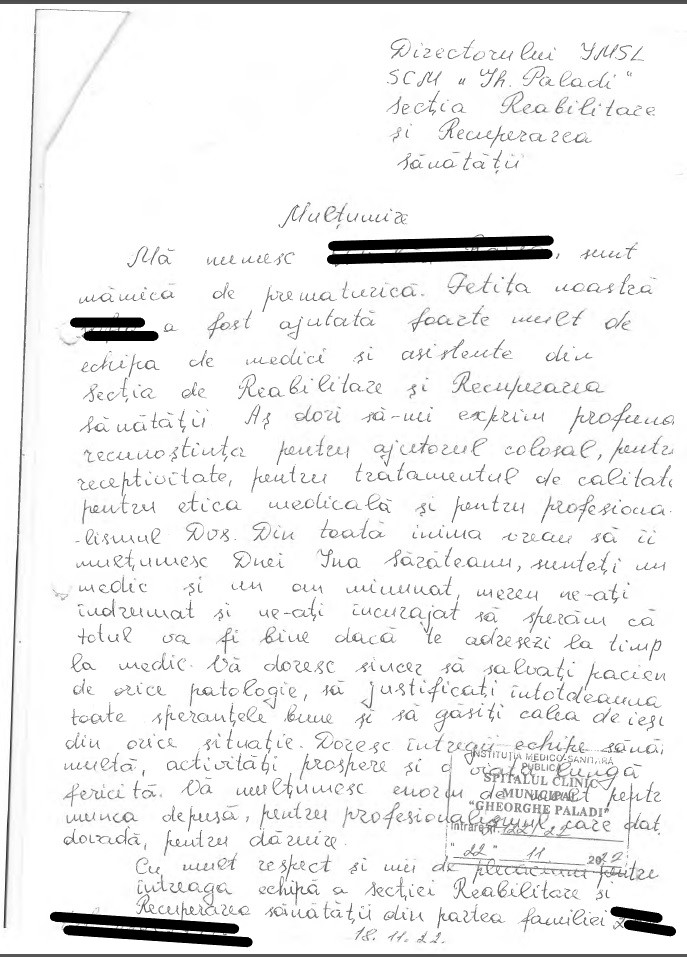 Directorului IMSL
SCM "Gh. Paladi"
Secția Reabilitare
și Recuperarea
sănătății
Mulțumire
Mă numesc , sunt
mămică de prematurică. Fetița noastră
a fost ajutată foarte mult de
echipa de medici și asistente din
Secția de Reabilitare și Recuperarea
sănătății Aș dori să-mi exprim profund
recunoștința pentru ajutorul colosal, pentr
receptivitate, pentru tratamentul de calitat
pentru etica medicală și pentru profesiona-
-lismul Dvs. Din toată inima vreau să îi
mulțumesc Dnei Ina Sărăteanu, sunteți un
medic și un om minunat, mereu ne-ați
îndrumat și ne-ați încurajat să sperăm că
totul va fi bine dacă te adresezi la timp
la medic. Vă doresc sincer să salvați pacien
de orice patologie, să justificați întotdeauna
toate speranțele bune și să găsiți calea de ieși
din orice situație. Doresc întregii echipe sănă
multă, activități prospere și o viață lungă
fericită. Vă mulțumesc enorm de mult pentr
munca depusă, pentru profesionalismul care dat
dovadă, pentru dăruire.
INSTITUȚIA MEDICO-SANITARĂ
PUBLICĂ
SPITALUL CLINIC
MUNICIPAL
"GHEORGHE PALADI"
Intrare nr.
"22" 11 2022
Cu mult respect și mii de plecăciuni pentre
întreaga echipă a secției Reabilitare și
Recuperarea sănătății din partea familiei
18.11.22.